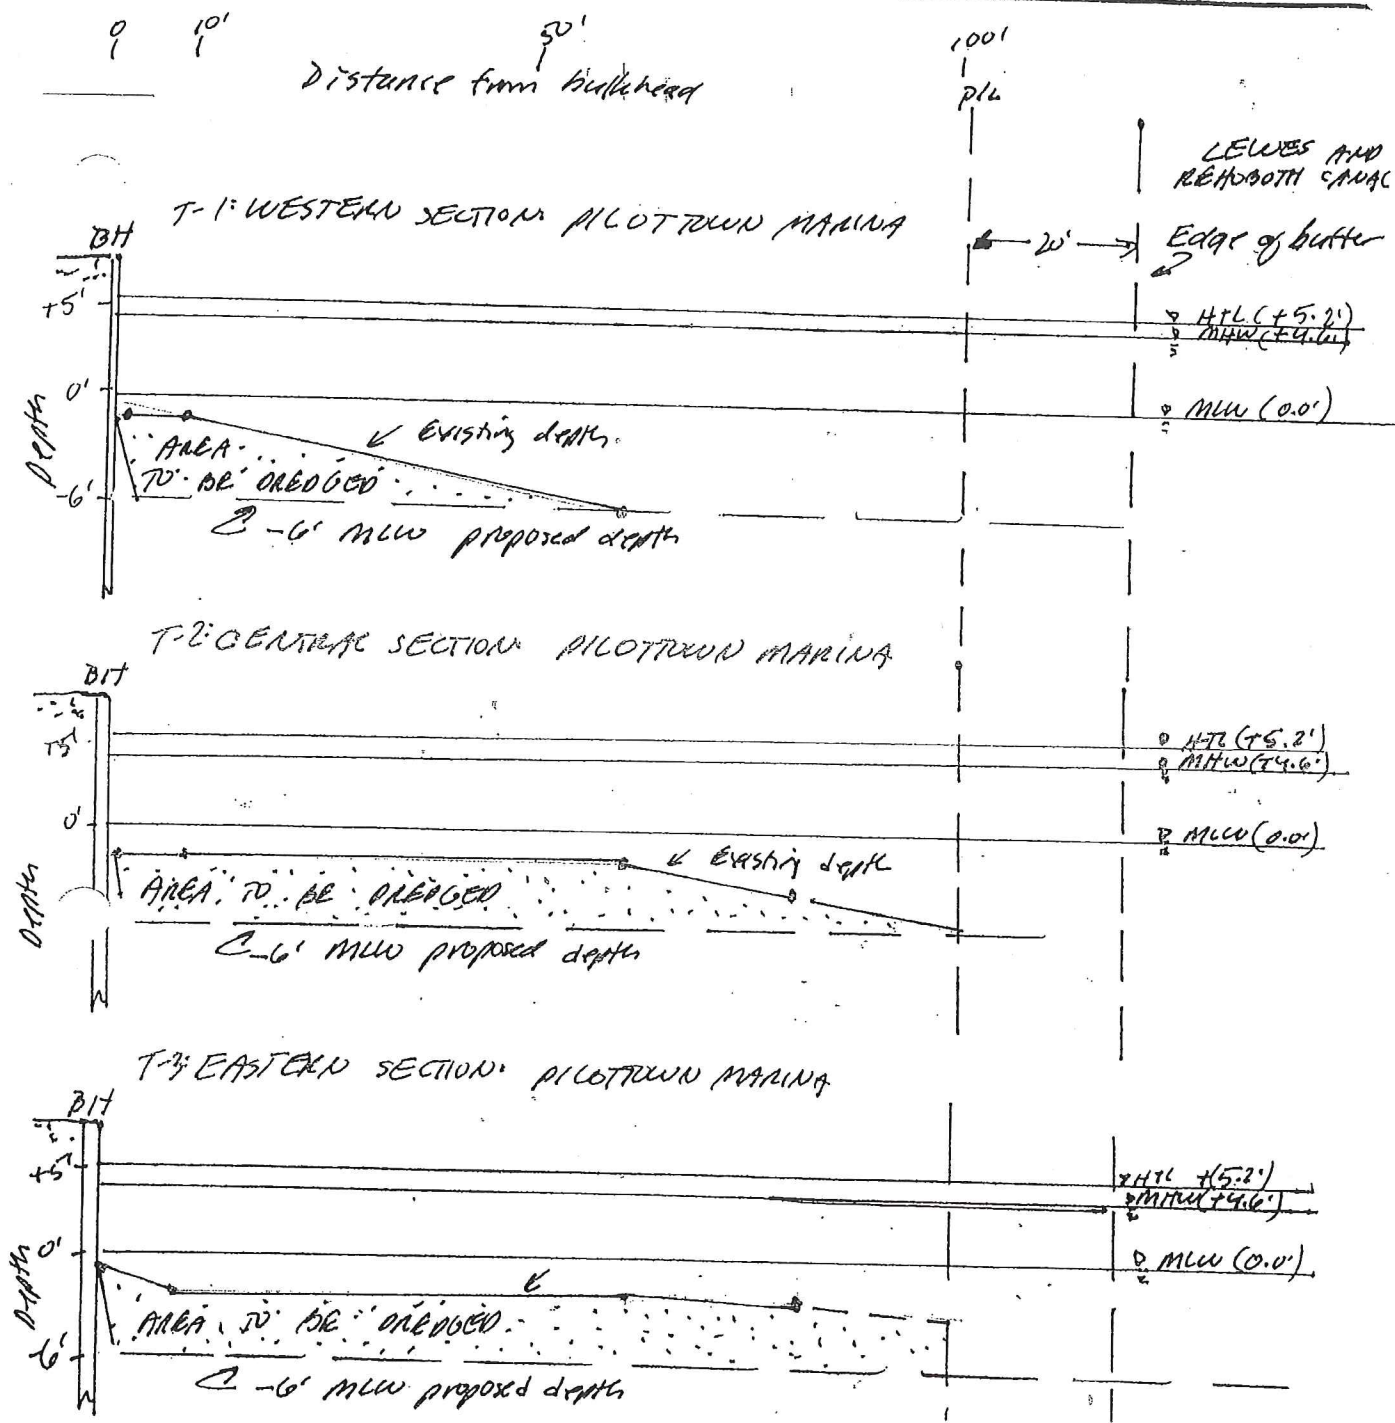 0 10' 50' 100'
Distance from bulkhead
P/L
LEWES AND
REHOBOTH CANAL
T-1: WESTERN SECTION: PILOTTOWN MARINA
BH
20'
Edge of buffer
+5'
HTL (+5.2')
MHW (+4.6')
0'
MLW (0.0')
Depth
Existing depth
AREA
TO BE DREDGED
-6'
-6' MLW proposed depth
T-2: CENTRAL SECTION: PILOTTOWN MARINA
BH
+5'
HTL (+5.2')
MHW (+4.6')
0'
MLW (0.0')
Existing depth
Depth
AREA TO BE DREDGED
-6' MLW proposed depth
T-3: EASTERN SECTION: PILOTTOWN MARINA
BH
+5'
HTL +(5.2')
MHW (+4.6')
0'
MLW (0.0')
Depth
AREA TO BE DREDGED
-6'
-6' MLW proposed depth